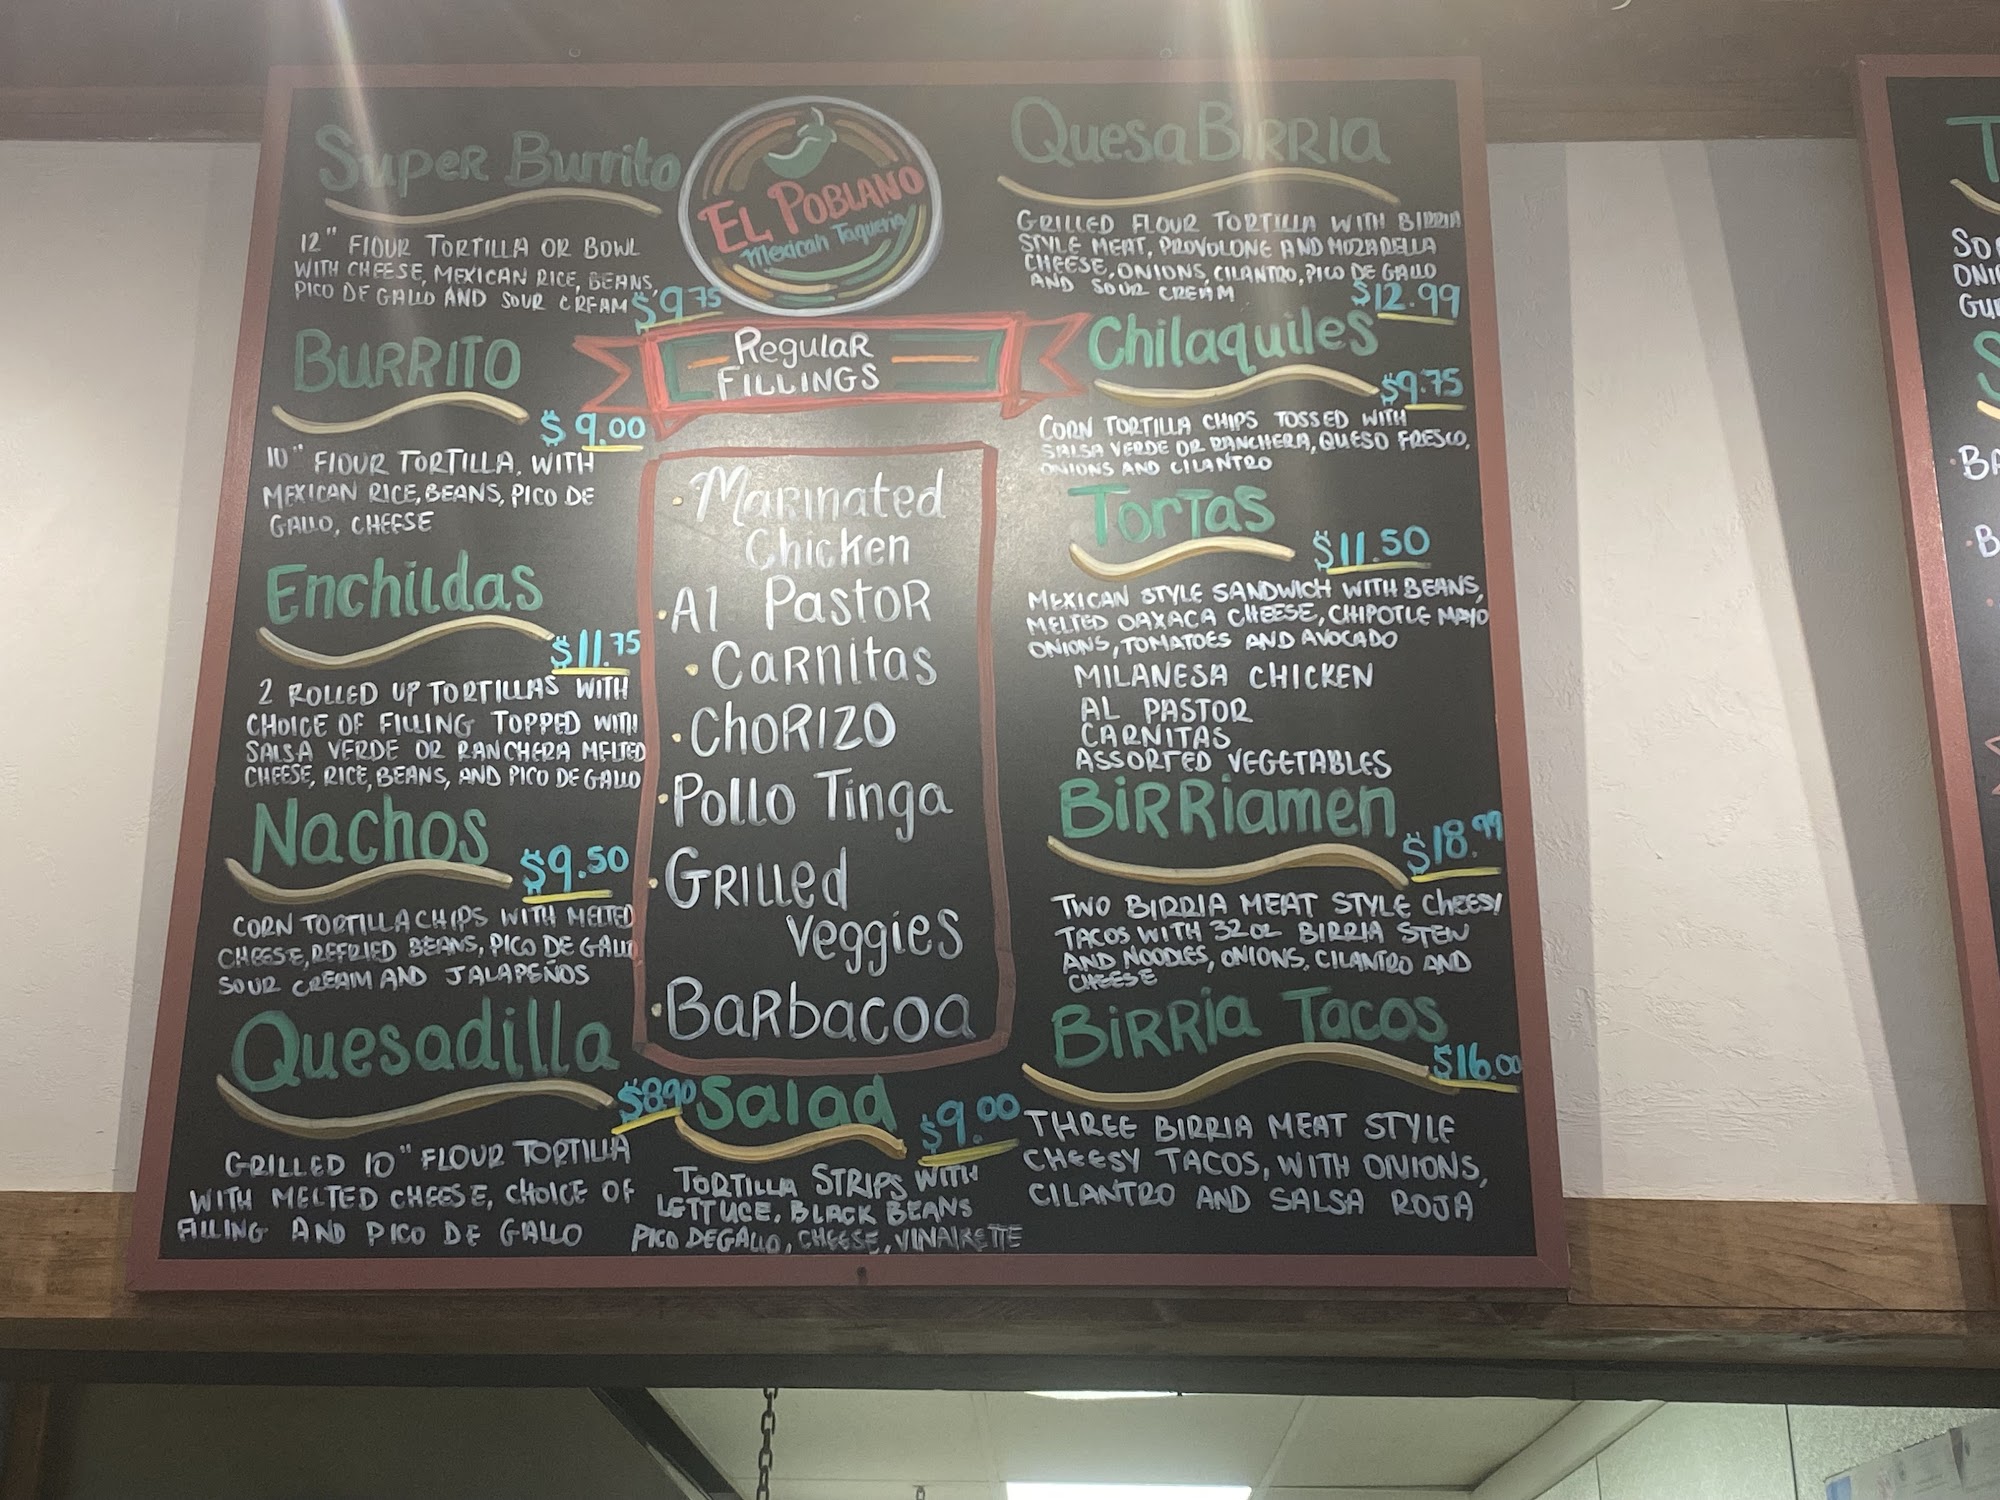 Super Burrito
12" FLOUR TORTILLA OR BOWL
WITH CHEESE, MEXICAN RICE, BEANS,
PICO DE GALLO AND SOUR CREAM $9.75
BURRITO
$9.00
10" FLOUR TORTILLA, WITH
MEXICAN RICE, BEANS, PICO DE
GALLO, CHEESE
Enchildas
$11.75
2 ROLLED UP TORTILLAS WITH
CHOICE OF FILLING TOPPED WITH
SALSA VERDE OR RANCHERA MELTED
CHEESE, RICE, BEANS, AND PICO DE GALLO
Nachos
$9.50
CORN TORTILLA CHIPS WITH MELTED
CHEESE, REFRIED BEANS, PICO DE GALLO,
SOUR CREAM AND JALAPEÑOS
Quesadilla
$8.90
GRILLED 10" FLOUR TORTILLA
WITH MELTED CHEESE, CHOICE OF
FILLING AND PICO DE GALLO
EL POBLANO
Mexican Taqueria
Regular
FILLINGS
· Marinated
Chicken
· Al Pastor
· Carnitas
· Chorizo
· Pollo Tinga
· Grilled
Veggies
· Barbacoa
Salad
$9.00
TORTILLA STRIPS WITH
LETTUCE, BLACK BEANS
PICO DE GALLO, CHEESE, VINAIRETTE
QuesaBirria
GRILLED FLOUR TORTILLA WITH BIRRIA
STYLE MEAT, PROVOLONE AND MOZARELLA
CHEESE, ONIONS, CILANTRO, PICO DE GALLO
AND SOUR CREAM $12.99
Chilaquiles
$9.75
CORN TORTILLA CHIPS TOSSED WITH
SALSA VERDE OR RANCHERA, QUESO FRESCO,
ONIONS AND CILANTRO
Tortas
$11.50
MEXICAN STYLE SANDWICH WITH BEANS,
MELTED OAXACA CHEESE, CHIPOTLE MAYO
ONIONS, TOMATOES AND AVOCADO
MILANESA CHICKEN
AL PASTOR
CARNITAS
ASSORTED VEGETABLES
Birriamen
$18.99
TWO BIRRIA MEAT STYLE CHEESY
TACOS WITH 32OZ BIRRIA STEW
AND NOODLES, ONIONS, CILANTRO AND
CHEESE
Birria Tacos
$16.00
THREE BIRRIA MEAT STYLE
CHEESY TACOS, WITH ONIONS,
CILANTRO AND SALSA ROJA